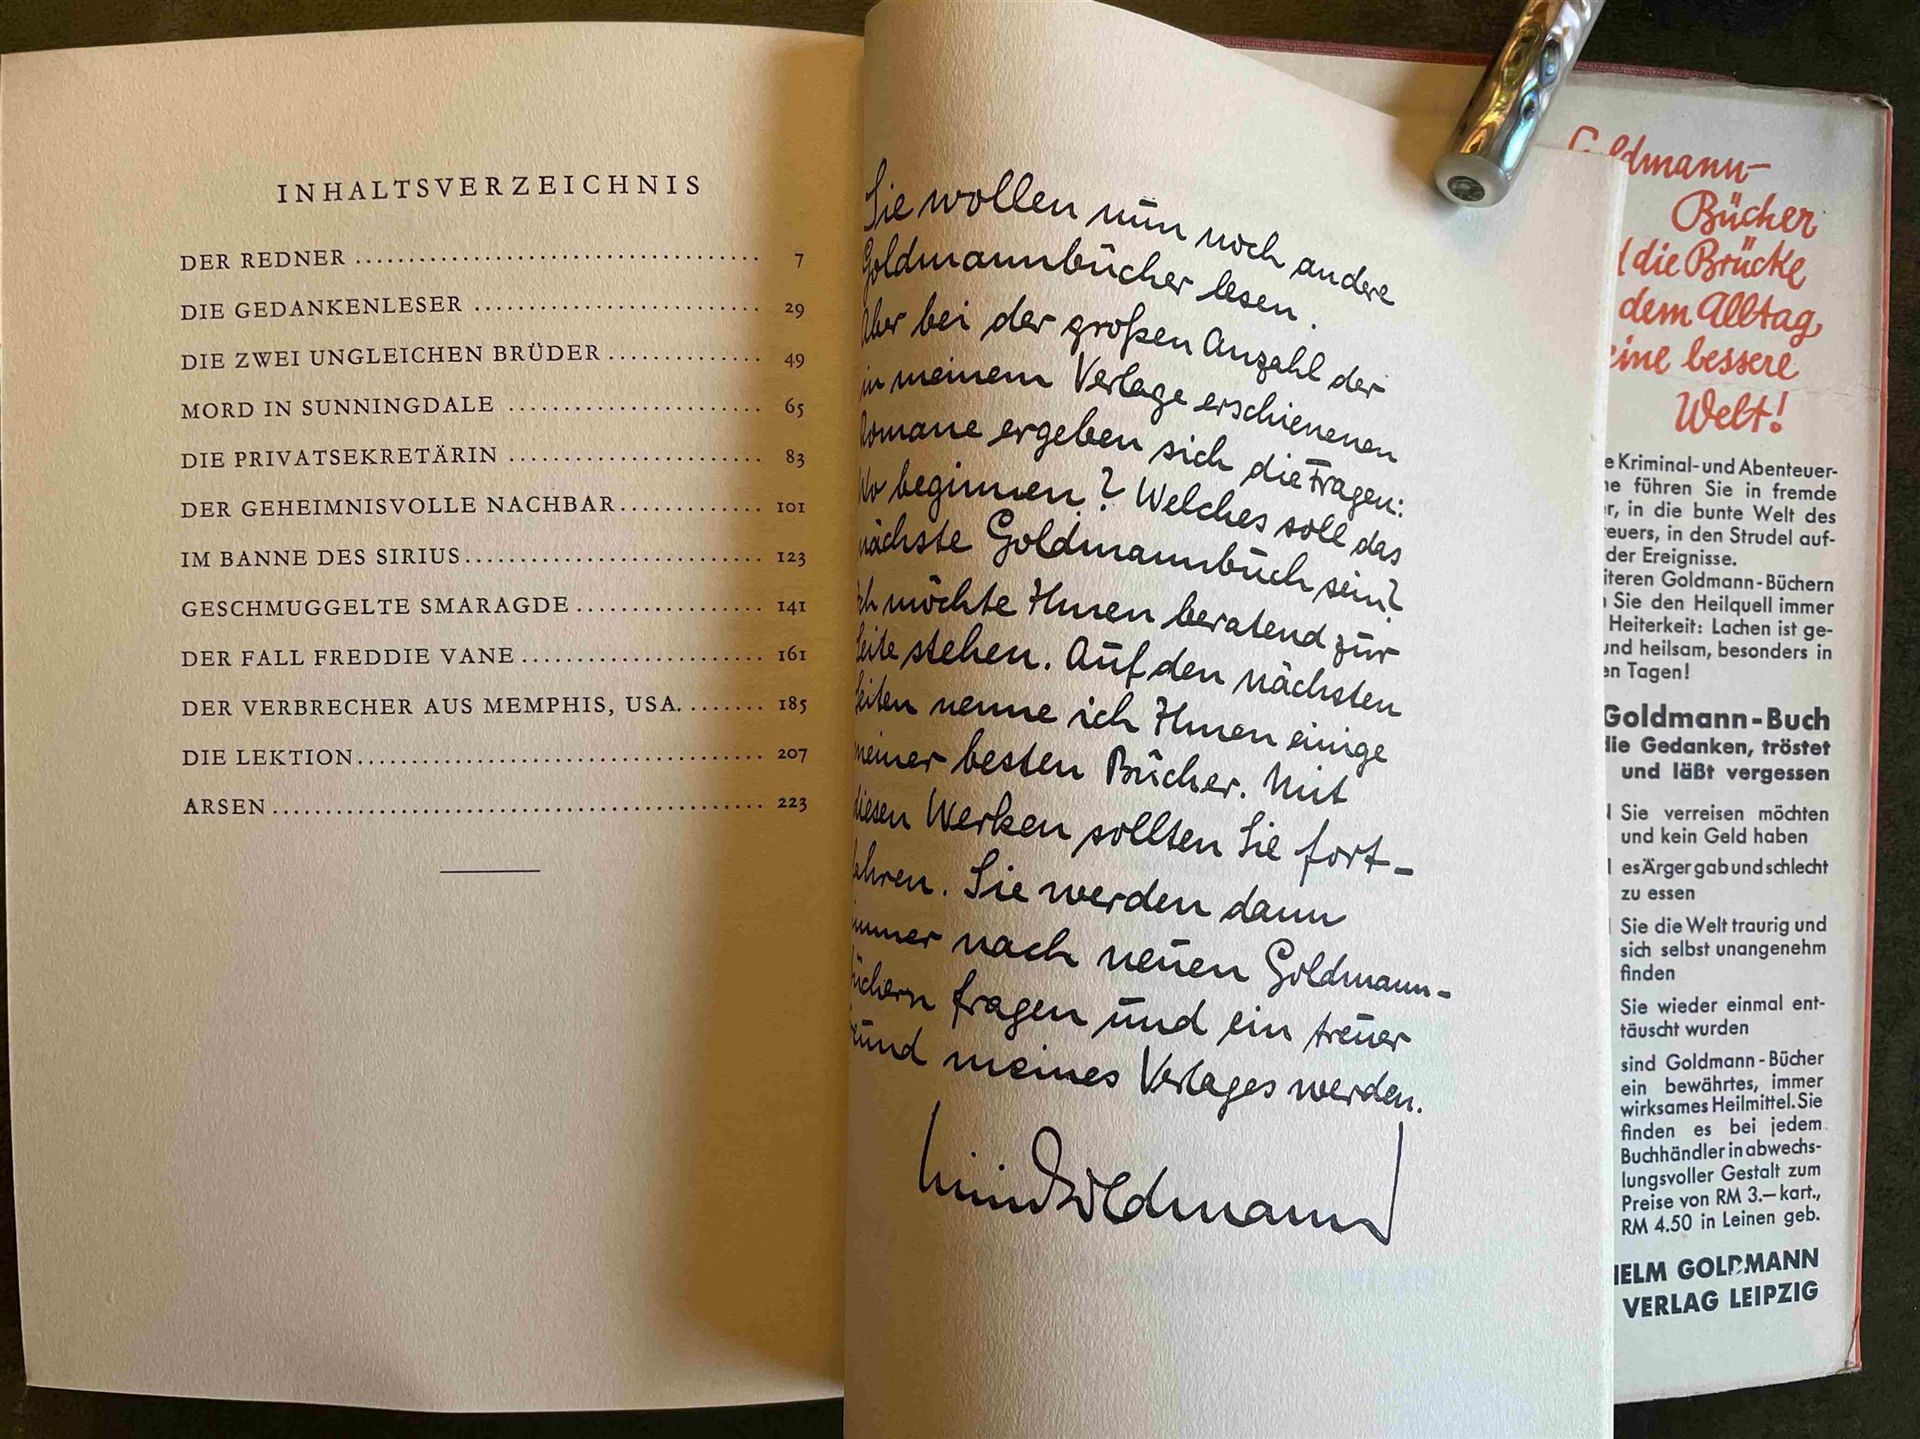 INHALTSVERZEICHNIS
DER REDNER .................................... 7
DIE GEDANKENLESER .......................... 29
DIE ZWEI UNGLEICHEN BRÜDER .............. 49
MORD IN SUNNINGDALE ....................... 65
DIE PRIVATSEKRETÄRIN ....................... 83
DER GEHEIMNISVOLLE NACHBAR ............. 101
IM BANNE DES SIRIUS ......................... 123
GESCHMUGGELTE SMARAGDE ................ 141
DER FALL FREDDIE VANE ..................... 161
DER VERBRECHER AUS MEMPHIS, USA. ....... 185
DIE LEKTION .................................. 207
ARSEN .......................................... 223
Sie wollen nun noch andere
Goldmannbücher lesen.
Aber bei der großen Anzahl der
in meinem Verlage erschienenen
Romane ergeben sich die Fragen:
Wo beginnen? Welches soll das
nächste Goldmannbuch sein?
Ich möchte Ihnen beratend zur
Seite stehen. Auf den nächsten
Seiten nenne ich Ihnen einige
meiner besten Bücher. Mit
diesen Werken sollten Sie fort-
fahren. Sie werden dann
immer nach neuen Goldmann-
büchern fragen und ein treuer
Freund meines Verlages werden.
Goldmann
Goldmann-
Bücher
die Brücke
dem Alltag
eine bessere
Welt!
e Kriminal- und Abenteuer-
ne führen Sie in fremde
r, in die bunte Welt des
euers, in den Strudel auf-
der Ereignisse.
iteren Goldmann-Büchern
Sie den Heilquell immer
Heiterkeit: Lachen ist ge-
und heilsam, besonders in
en Tagen!
Goldmann-Buch
die Gedanken, tröstet
und läßt vergessen
Sie verreisen möchten
und kein Geld haben
es Ärger gab und schlecht
zu essen
Sie die Welt traurig und
sich selbst unangenehm
finden
Sie wieder einmal ent-
täuscht wurden
sind Goldmann-Bücher
ein bewährtes, immer
wirksames Heilmittel. Sie
finden es bei jedem
Buchhändler in abwechs-
lungsvoller Gestalt zum
Preise von RM 3.— kart.,
RM 4.50 in Leinen geb.
HELM GOLDMANN
VERLAG LEIPZIG